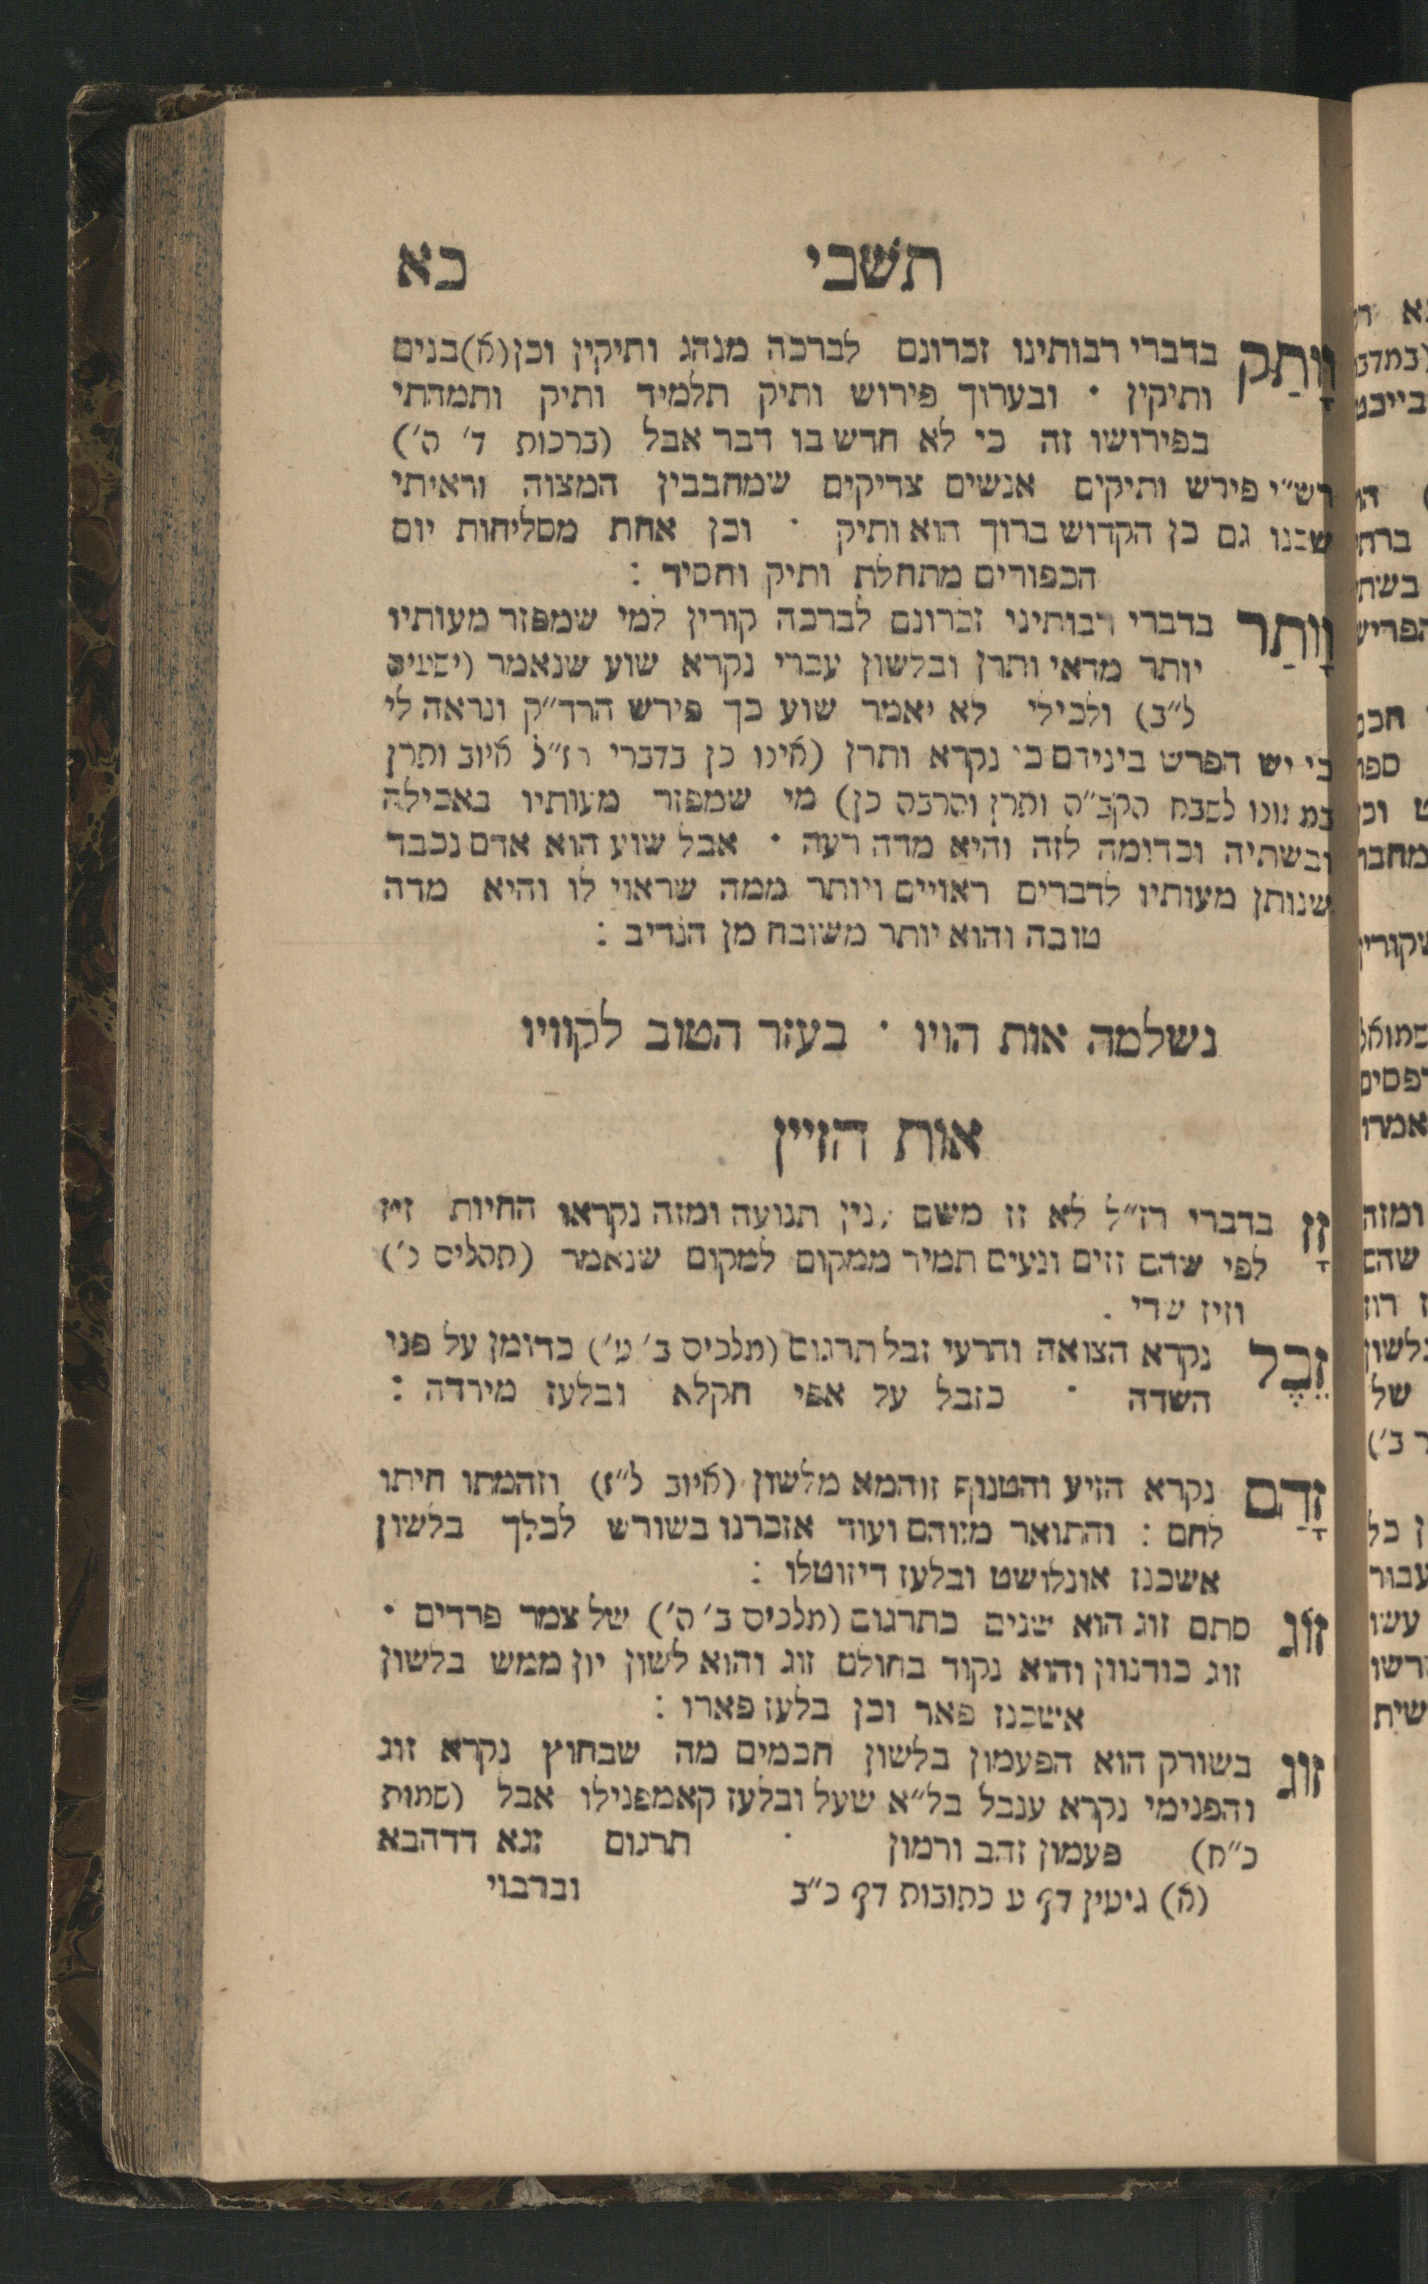 תשבי כא
וָתַק בדברי רבותינו זכרונם לברכה מנהג ותיקין וכן (א) בנים
ותיקין · ובערוך פירוש ותיק תלמיד ותיק ותמהתי
בפירושו זה כי לא חדש בו דבר אבל (ברכות ד׳ ה׳)
רש״י פירש ותיקים אנשים צדיקים שמחבבין המצוה וראיתי
שכנו גם כן הקדוש ברוך הוא ותיק · וכן אחת מסליחות יום
הכפורים מתחלת ותיק וחסיד :
וָתַר בדברי רבותיני זכרונם לברכה קורין למי שמפזר מעותיו
יותר מדאי ותרן ובלשון עברי נקרא שוע שנאמר (ישעיה
ל״ב) ולכילי לא יאמר שוע כך פירש הרד״ק ונראה לי
כי יש הפרש ביניהם כי נקרא ותרן (אינו כן בדברי רז״ל איוב ותרן
הקב״ה ותרן והרבה כן) מי שמפזר מעותיו באכילה
ובשתיה וכדומה לזה והיא מדה רעה · אבל שוע הוא אדם נכבד
שנותן מעותיו לדברים ראויים ויותר ממה שראוי לו והיא מדה
טובה והוא יותר משובח מן הנדיב :
נשלמה אות הויו · בעזר הטוב לקוויו
אות הזיין
זָז בדברי רז״ל לא זז משם תנועה ומזה נקראו החיות זיז
לפי שהם זזים ונעים תמיד ממקום למקום שנאמר (תהלים נ׳)
וזיז שדי .
זֶבֶל נקרא הצואה והרעי זבל תרגום (מלכים ב׳ ט׳) כדומן על פני
השדה · כזבל על אפי חקלא ובלעז מירדה :
זָהַם נקרא הזיע והטנוף זוהמא מלשון (איוב ל״ז) וזהמתו חיתו
לחם : והתואר מזוהם ועוד אזכרנו בשורש לכלך בלשון
אשכנז אונלושט ובלעז דיזוטלו :
זוֹג סתם זוג הוא שנים בתרגום (מלכים ב׳ ה׳) של צמד פרדים ·
זוג כודנוון והוא נקוד בחולם זוג והוא לשון יון ממש בלשון
אשכנז פאר וכן בלעז פארו :
זוג בשורק הוא הפעמון בלשון חכמים מה שבחוץ נקרא זוג
והפנימי נקרא ענבל בל״א שעל ובלעז קאמפנילו אבל (שמות
כ״ח) פעמון זהב ורמון · תרגום זגא דדהבא
(א) גיטין דף ע כתובות דף כ״ב וברבוי